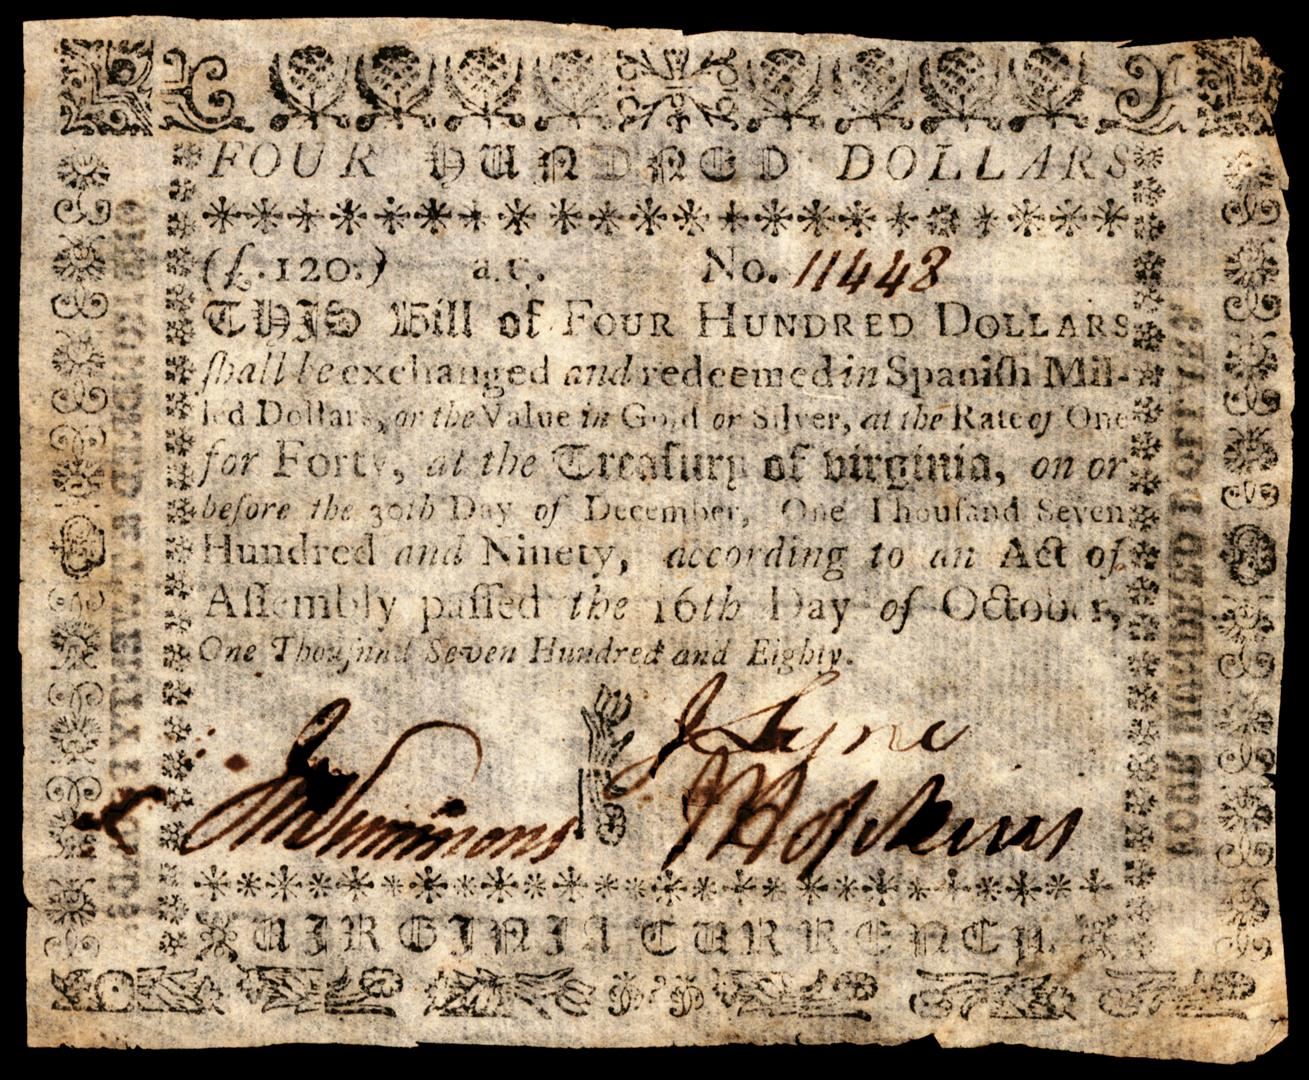 FOUR HUNDRED DOLLARS
(£.120.) a.c. No. 11448
THIS Bill of FOUR HUNDRED DOLLARS
ſhall be exchanged and redeemed in Spaniſh Mil-
led Dollars, or the Value in Gold or Silver, at the Rate of One
for Forty, at the Treaſury of virginia, on or
before the 30th Day of December, One Thouſand Seven
Hundred and Ninety, according to an Act of
Aſſembly paſſed the 16th Day of October,
One Thouſand Seven Hundred and Eighty.
J Lyne
Simmons
J Hopkins
VIRGINIA CURRENCY.
FOUR HUNDRED DOLLARS